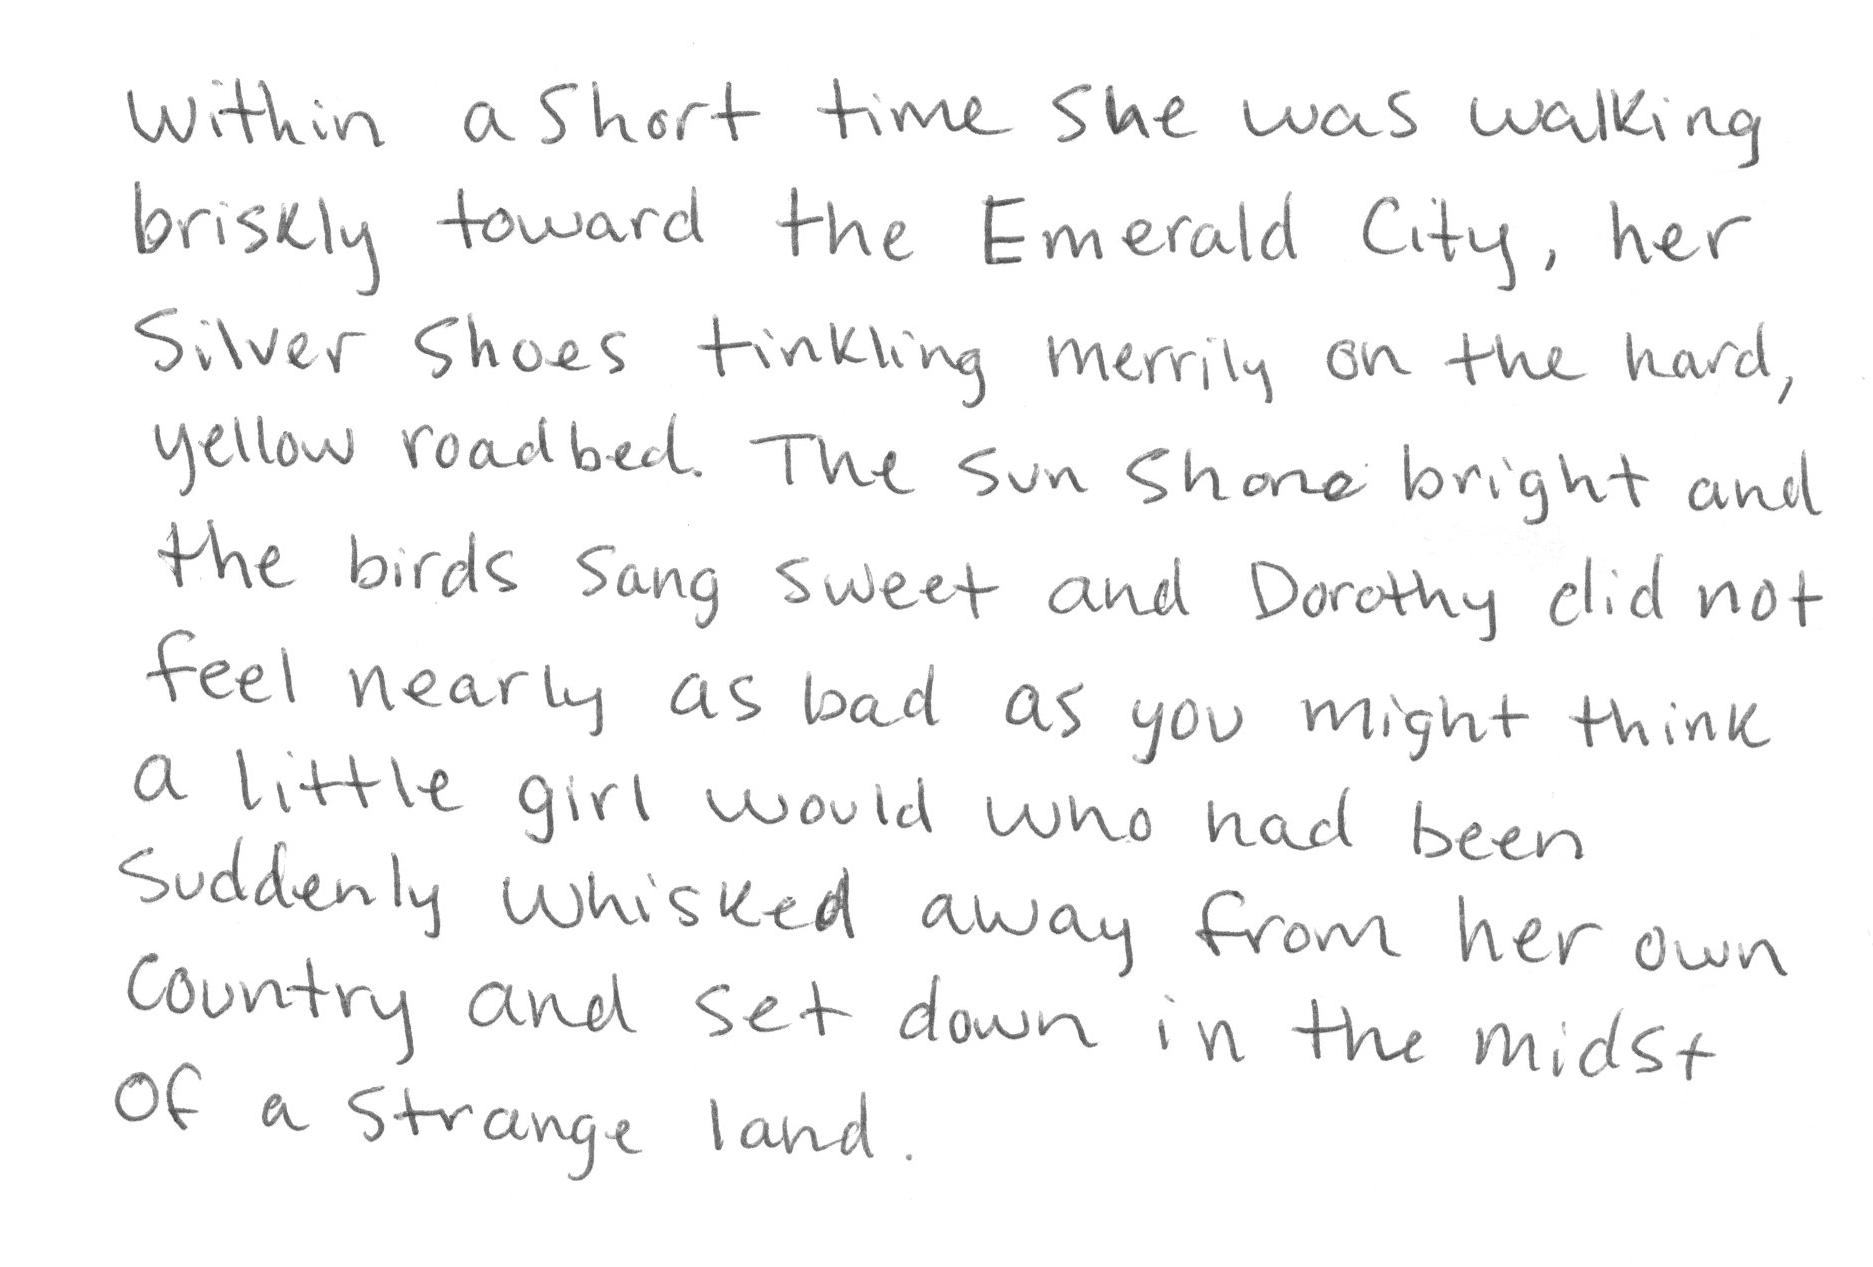 Within a short time she was walking
briskly toward the Emerald City, her
Silver Shoes tinkling merrily on the hard,
yellow roadbed. The sun shone bright and
the birds sang sweet and Dorothy did not
feel nearly as bad as you might think
a little girl would who had been
suddenly whisked away from her own
country and set down in the midst
of a strange land.